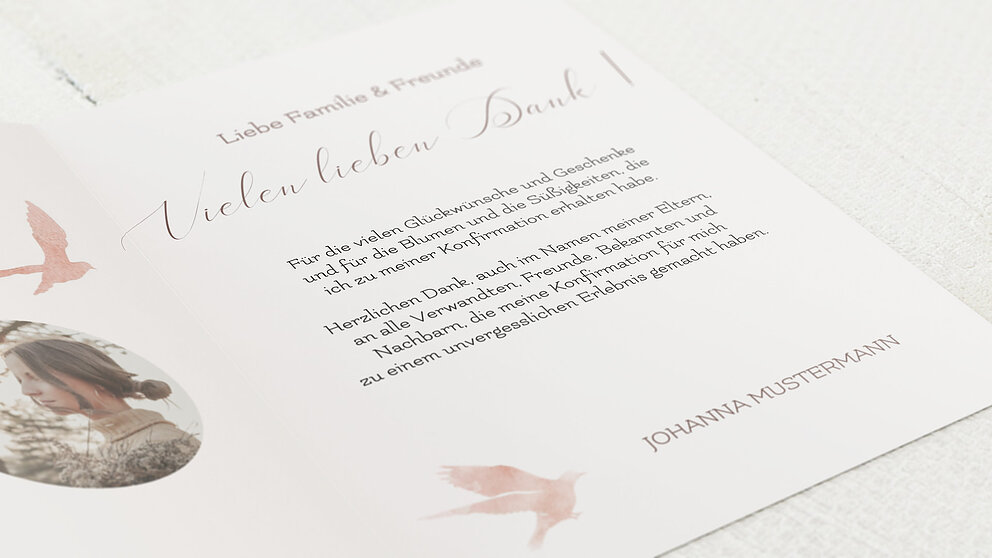 Liebe Familie & Freunde
Vielen lieben Dank
Für die vielen Glückwünsche und Geschenke
und für die Blumen und die Süßigkeiten, die
ich zu meiner Konfirmation erhalten habe.
Herzlichen Dank, auch im Namen meiner Eltern,
an alle Verwandten, Freunde, Bekannten und
Nachbarn, die meine Konfirmation für mich
zu einem unvergesslichen Erlebnis gemacht haben.
JOHANNA MUSTERMANN